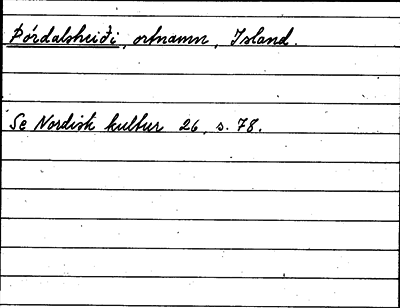 Þórdalsheiði, ortnamn, Island.
Se Nordisk kultur 26, s. 78.